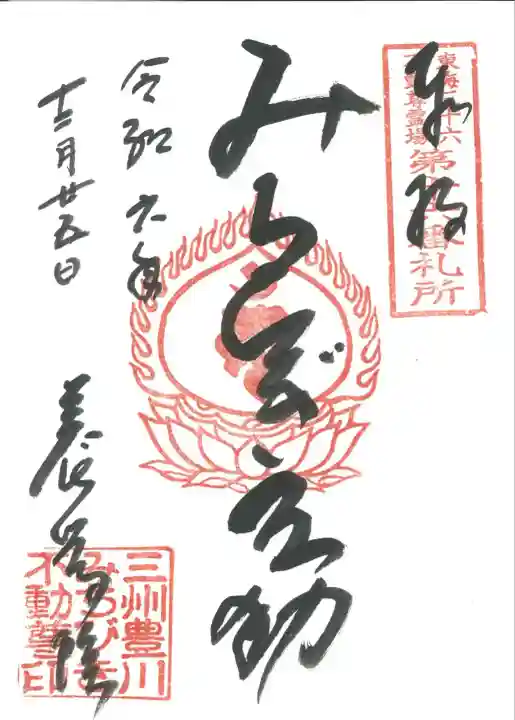 奉拝
東海三十六
不動尊霊場
第十六番札所
みちびき不動
令和六年
十二月廿五日
三州豊川
みちびき
不動尊印
養学院